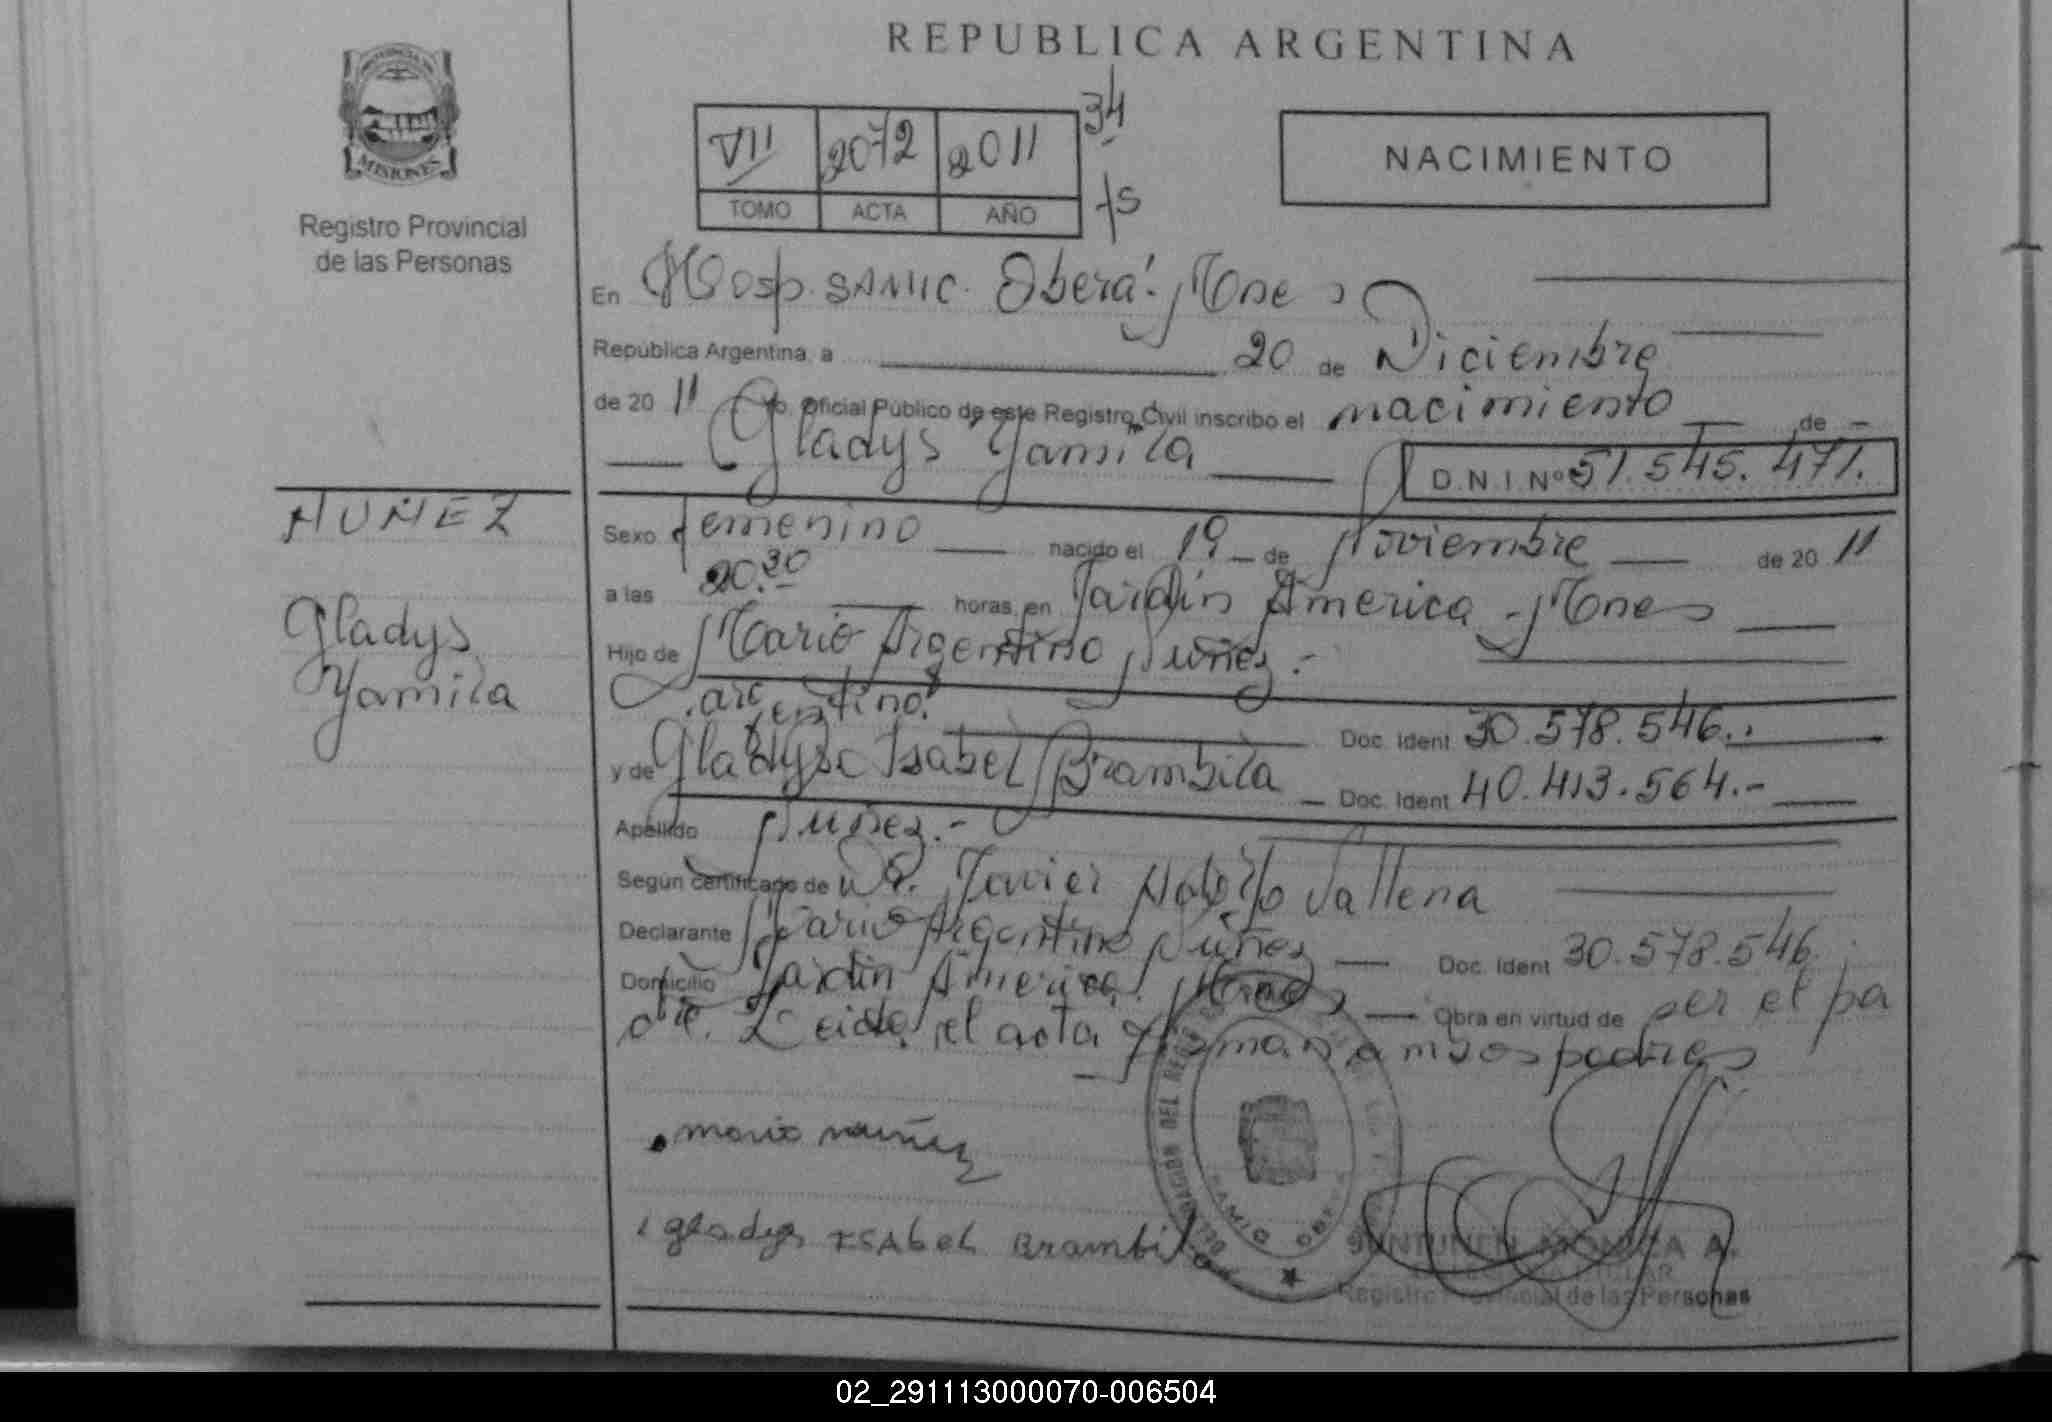 REPUBLICA ARGENTINA
MISIONES
Registro Provincial
de las Personas
VII 2072 2011 34
TOMO ACTA AÑO
NACIMIENTO
En Hosp. SAMIC. Oberá. Mnes
República Argentina, a 20 de Diciembre
de 2011 Yo, Oficial Público de este Registro Civil inscribo el nacimiento de
Gladys Yamila
D.N.I. Nº 51.545.471.
NUÑEZ
Gladys
Yamila
Sexo femenino nacido el 19 de Noviembre de 2011
a las 20.30 horas, en Jardín America - Mnes
Hijo de Mario Argentino Nuñez.-
argentino. Doc. Ident 30.578.546..
y de Gladys Isabel Brambila Doc. Ident 40.413.564.-
Apellido Nuñez.-
Según certificado de Dr. Javier Adolfo
Declarante Mario Argentino Nuñez Doc. Ident 30.578.546.
Domicilio Jardin America. Mnes Obra en virtud de ser el pa
dre. Leida el acta firman ambos padres
mario nuñez
gladys ISAbeL Brambil
DELEGACION DEL REGISTRO
MONICA A.
Registro Provincial de las Personas
02_291113000070-006504